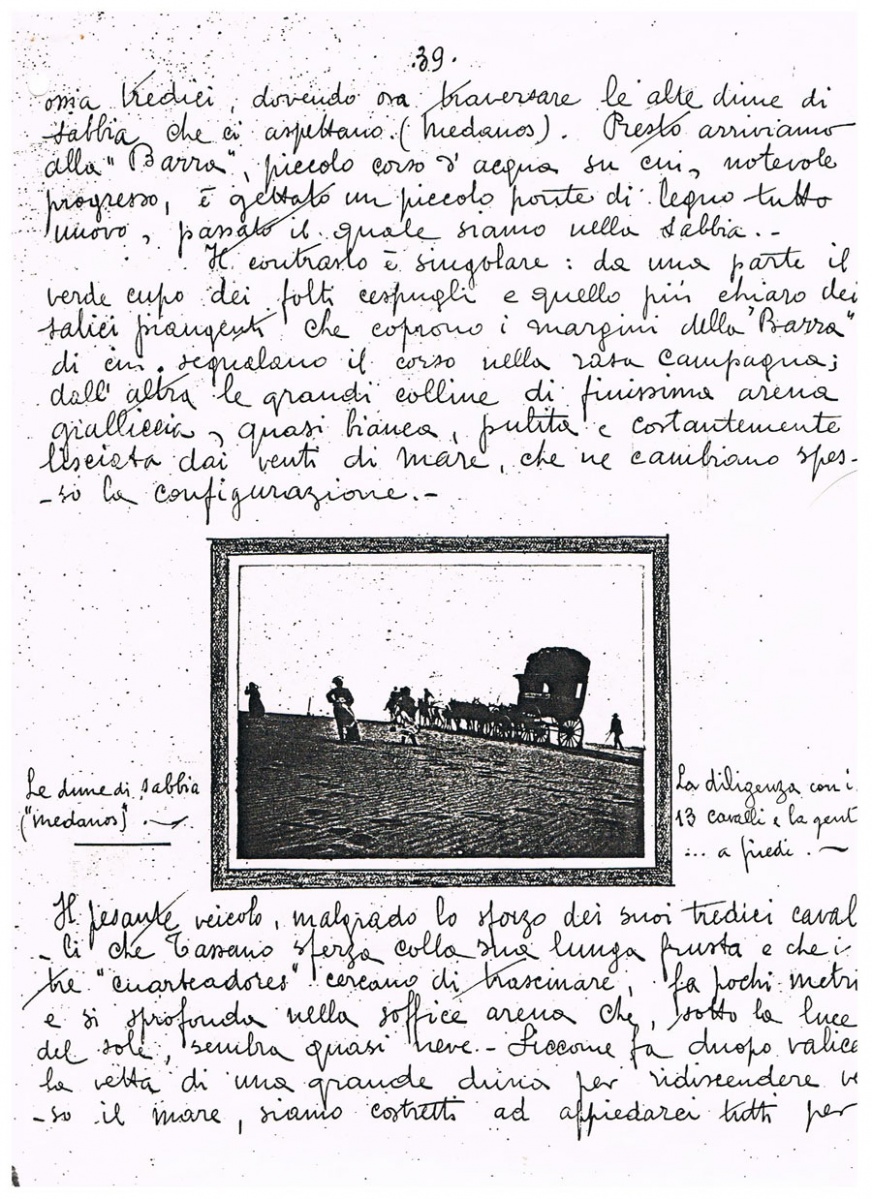 39.
ossia tredici, dovendo ora traversare le alte dune di
sabbia che ci aspettano. (medanos). Presto arriviamo
alla "Barra", piccolo corso d'acqua su cui, notevole
progresso, è gettato un piccolo ponte di legno tutto
nuovo, passato il quale siamo nella sabbia.-
Il contrasto è singolare: da una parte il
verde cupo dei folti cespugli e quello più chiaro dei
salici piangenti che coprono i margini della "Barra"
di cui segnalano il corso nella rasa campagna;
dall'altra le grandi colline di finissima arena
gialliccia, quasi bianca, pulita e costantemente
lisciata dai venti di mare, che ne cambiano spes-
-so la configurazione.-
Le dune di sabbia
("medanos").
La diligenza con i
13 cavalli e la gent
... a piedi.
Il pesante veicolo, malgrado lo sforzo dei suoi tredici caval
-li che Tassano sferza colla sua lunga frusta e che i
tre "cuarteadores" cercano di trascinare, fa pochi metri
e si sprofonda nella soffice arena che, sotto la luce
del sole, sembra quasi neve.- Siccome fa duopo valica
la vetta di una grande duna per ridiscendere ve
-so il mare, siamo costretti ad appiedarci tutti per